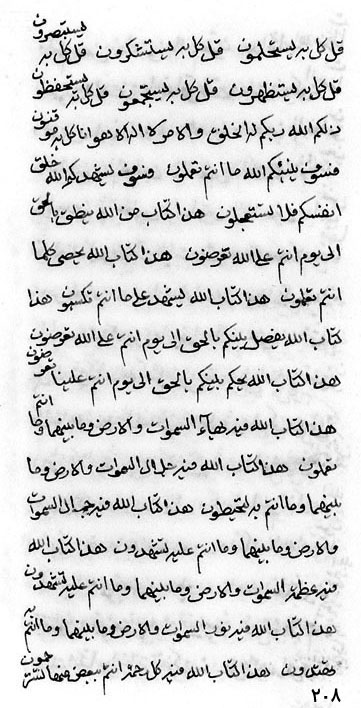 قل كل به يستحلمون قل كل به يستشكرون قل كل به يستبصرون
قل كل به يستظهرون قل كل به يستجمعون قل كل به يستحفظون
ذلكم الله ربكم له الخلق والامر لا اله الا هو وانا كل به موقنون
فسوف ينبئكم الله ما انتم تعملون وسوف يستشهدكم الله خلق
انفسكم فلا تستعجلون هذا كتاب من الله ينطق بالحق
الى يوم انتم على الله تعرضون هذا كتاب الله يحصي كلما
انتم تعملون هذا كتاب الله ليشهد على ما انتم تكسبون هذا
كتاب الله يفصل بينكم بالحق الى يوم انتم على الله تعرضون
هذا كتاب الله يحكم بينكم بالحق الى يوم انتم علينا تعرضون
هذا كتاب الله فيه بهاء السموات والارض وما بينهما وما انتم
تعملون هذا كتاب الله فيه جلال السموات والارض وما
بينهما وما انتم به لتحيطون هذا كتاب الله فيه جمال السموات
والارض وما بينهما وما انتم عليه تشهدون هذا كتاب الله
فيه عظمة السموات والارض وما بينهما وما انتم عليه تشهدون
هذا كتاب الله فيه نور السموات والارض وما بينهما وما انتم به
تهتدون هذا كتاب الله فيه كل انتم ببعض منها
٢٠٨